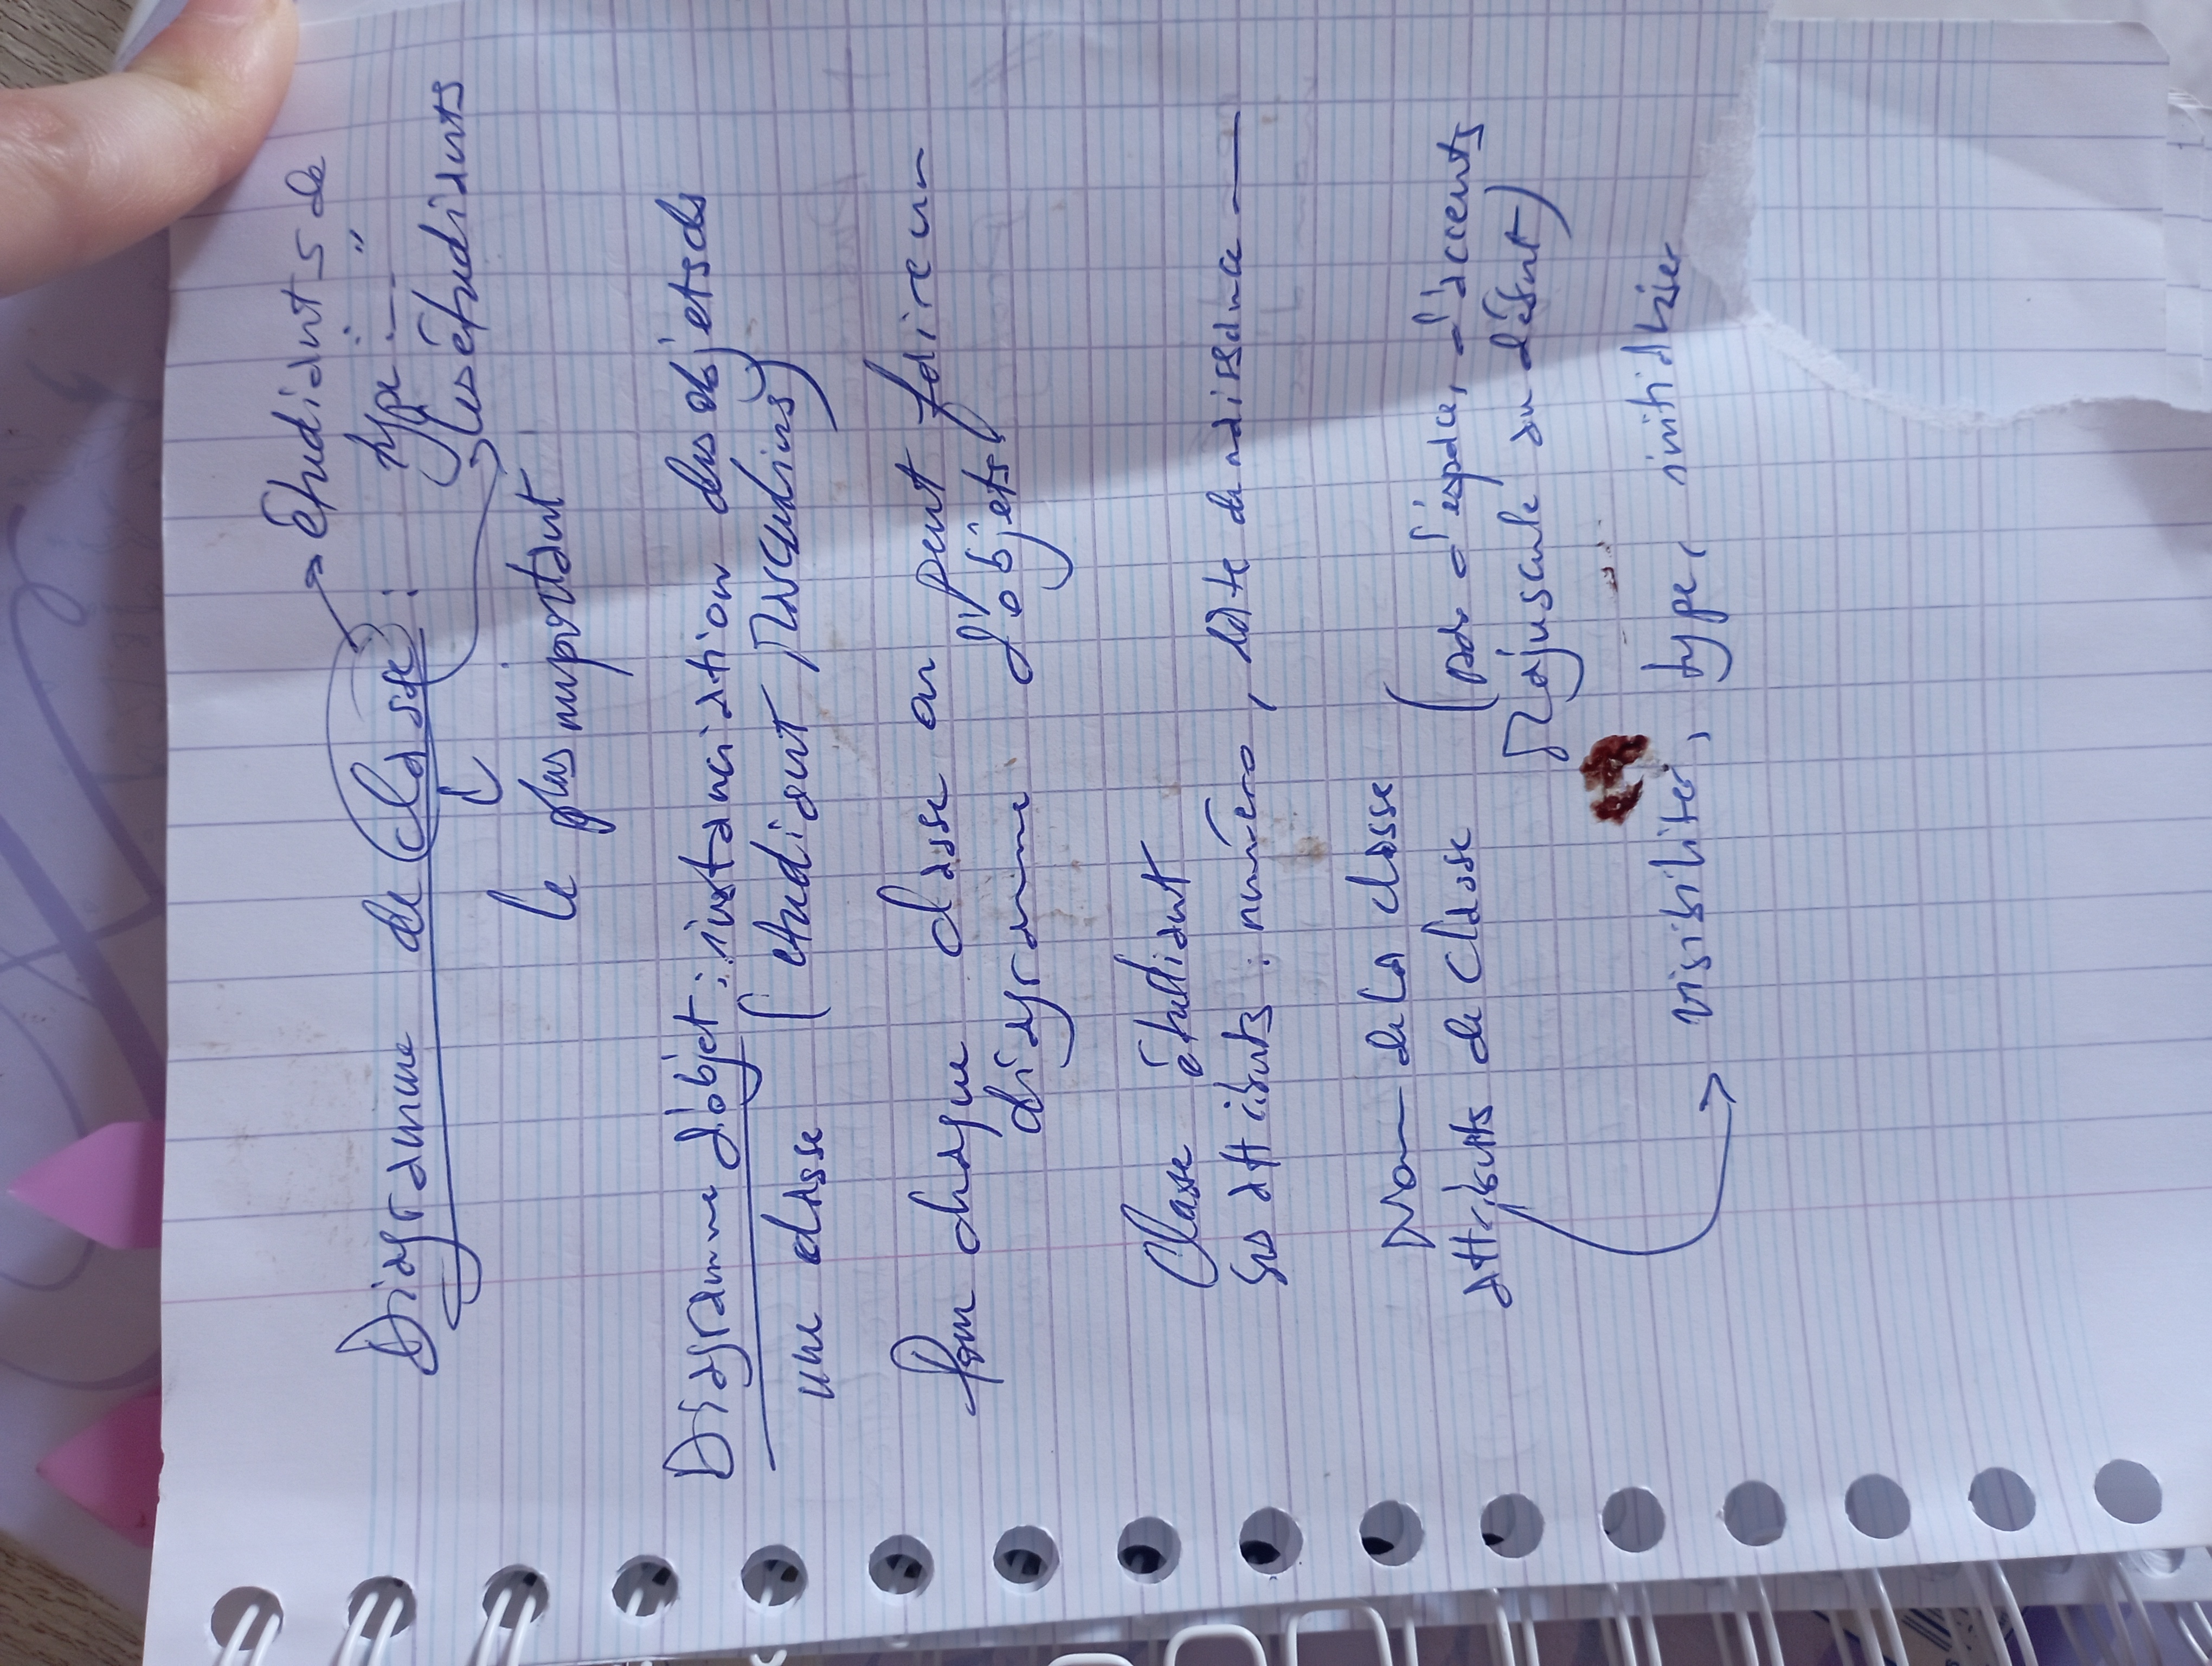 Étudiants de
Diagramme de classe : type : — "
les étudiants
le plus important
Diagramme d'objet : instanciation des objets de
une classe (étudiant
Pour chaque classe on peut faire un
diagramme d'objets
Classe étudiant
Ses attributs : numéro, date de naissance —
Nom de la classe
Attributs de classe (pas d'espace, d'accents
Majuscule au début)
→ visibiliter, typer initialiser